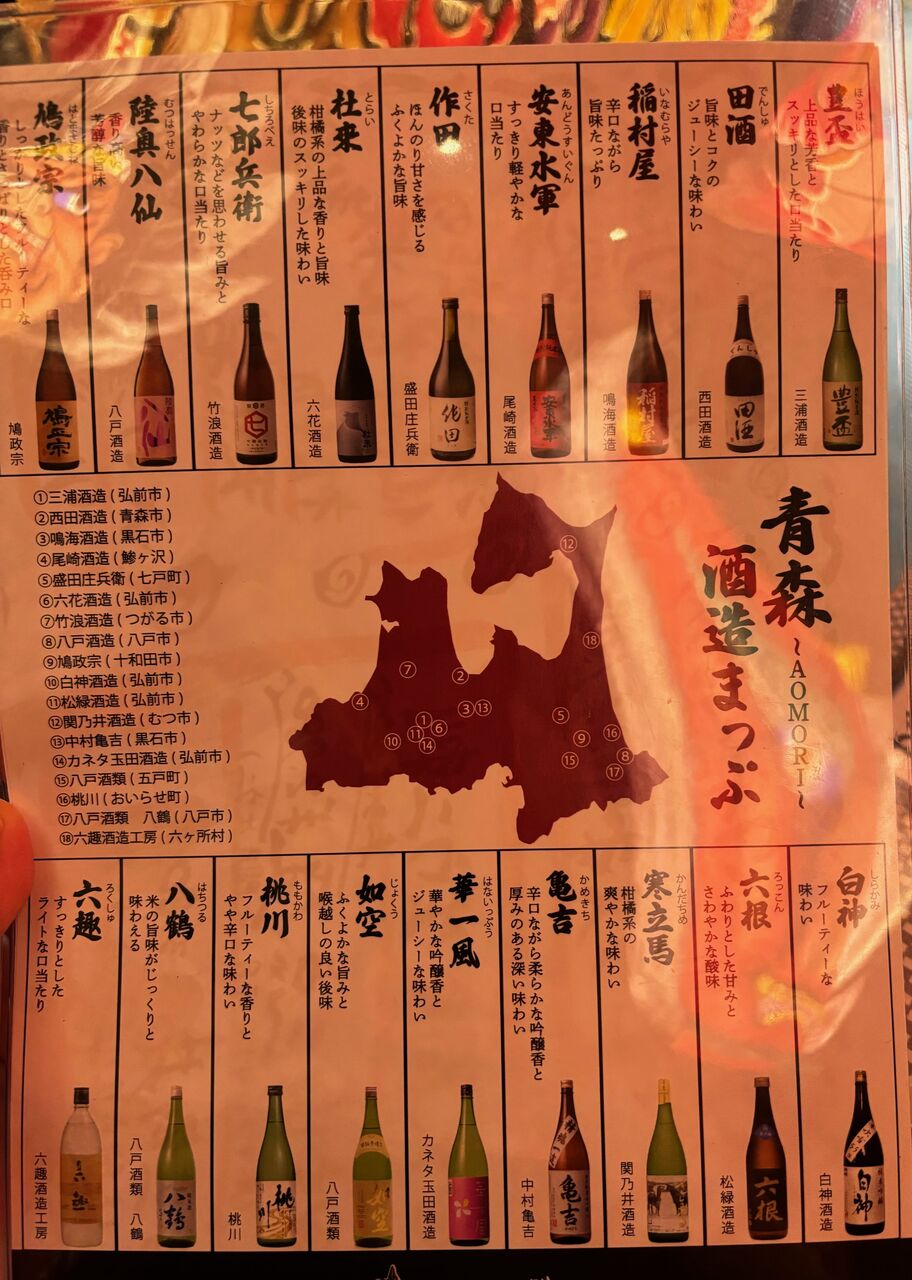 ほうはい
豊盃
上品な芳香と
スッキリとした口当たり
三浦酒造
でんしゅ
田酒
旨味とコクの
ジューシーな味わい
西田酒造
いなむらや
稲村屋
辛口ながら
旨味たっぷり
鳴海酒造
あんどうすいぐん
安東水軍
すっきり軽やかな
口当たり
尾崎酒造
さくた
作田
ほんのり甘さを感じる
ふくよかな旨味
盛田庄兵衛
とらい
杜来
柑橘系の上品な香りと旨味
後味のスッキリした味わい
六花酒造
しちろべえ
七郎兵衛
ナッツなどを思わせる旨みと
やわらかな口当たり
竹浪酒造
むつはっせん
陸奥八仙
八戸酒造
はとまさむね
鳩政宗
しっとりとしたフルーティーな
鳩政宗
青森
~AOMORI~
酒造まっぷ
①三浦酒造(弘前市)
②西田酒造(青森市)
③鳴海酒造(黒石市)
④尾崎酒造(鰺ヶ沢)
⑤盛田庄兵衛(七戸町)
⑥六花酒造(弘前市)
⑦竹浪酒造(つがる市)
⑧八戸酒造(八戸市)
⑨鳩政宗(十和田市)
⑩白神酒造(弘前市)
⑪松緑酒造(弘前市)
⑫関乃井酒造(むつ市)
⑬中村亀吉(黒石市)
⑭カネタ玉田酒造(弘前市)
⑮八戸酒類(五戸町)
⑯桃川(おいらせ町)
⑰八戸酒類 八鶴(八戸市)
⑱六趣酒造工房(六ヶ所村)
しらかみ
白神
フルーティーな
味わい
白神酒造
ろっこん
六根
ふわりとした甘みと
さわやかな酸味
松緑酒造
かんだちめ
寒立馬
柑橘系の
爽やかな味わい
関乃井酒造
かめきち
亀吉
辛口ながら柔らかな吟醸香と
厚みのある深い味わい
中村亀吉
はないっぷう
華一風
華やかな吟醸香と
ジューシーな味わい
カネタ玉田酒造
じょくう
如空
ふくよかな旨みと
喉越しの良い後味
八戸酒類
ももかわ
桃川
フルーティーな香りと
やや辛口な味わい
桃川
はちつる
八鶴
米の旨味がじっくりと
味わえる
八戸酒類 八鶴
ろくしゅ
六趣
すっきりとした
ライトな口当たり
六趣酒造工房